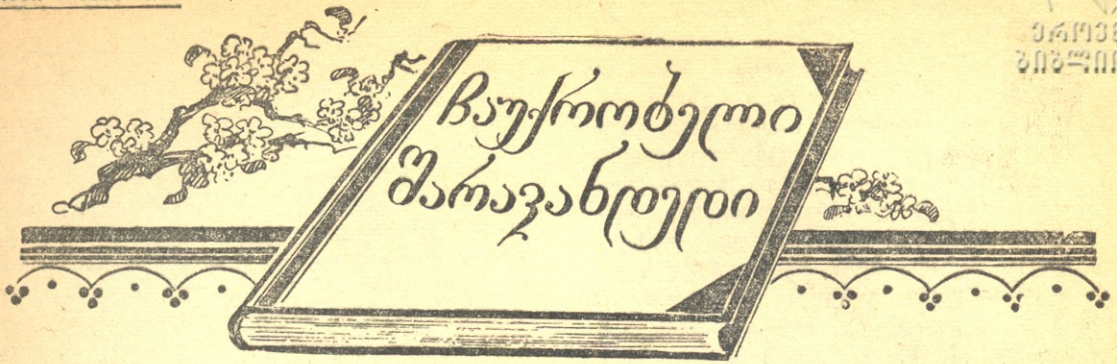 ჩაუქრობელი
შარავანდედი